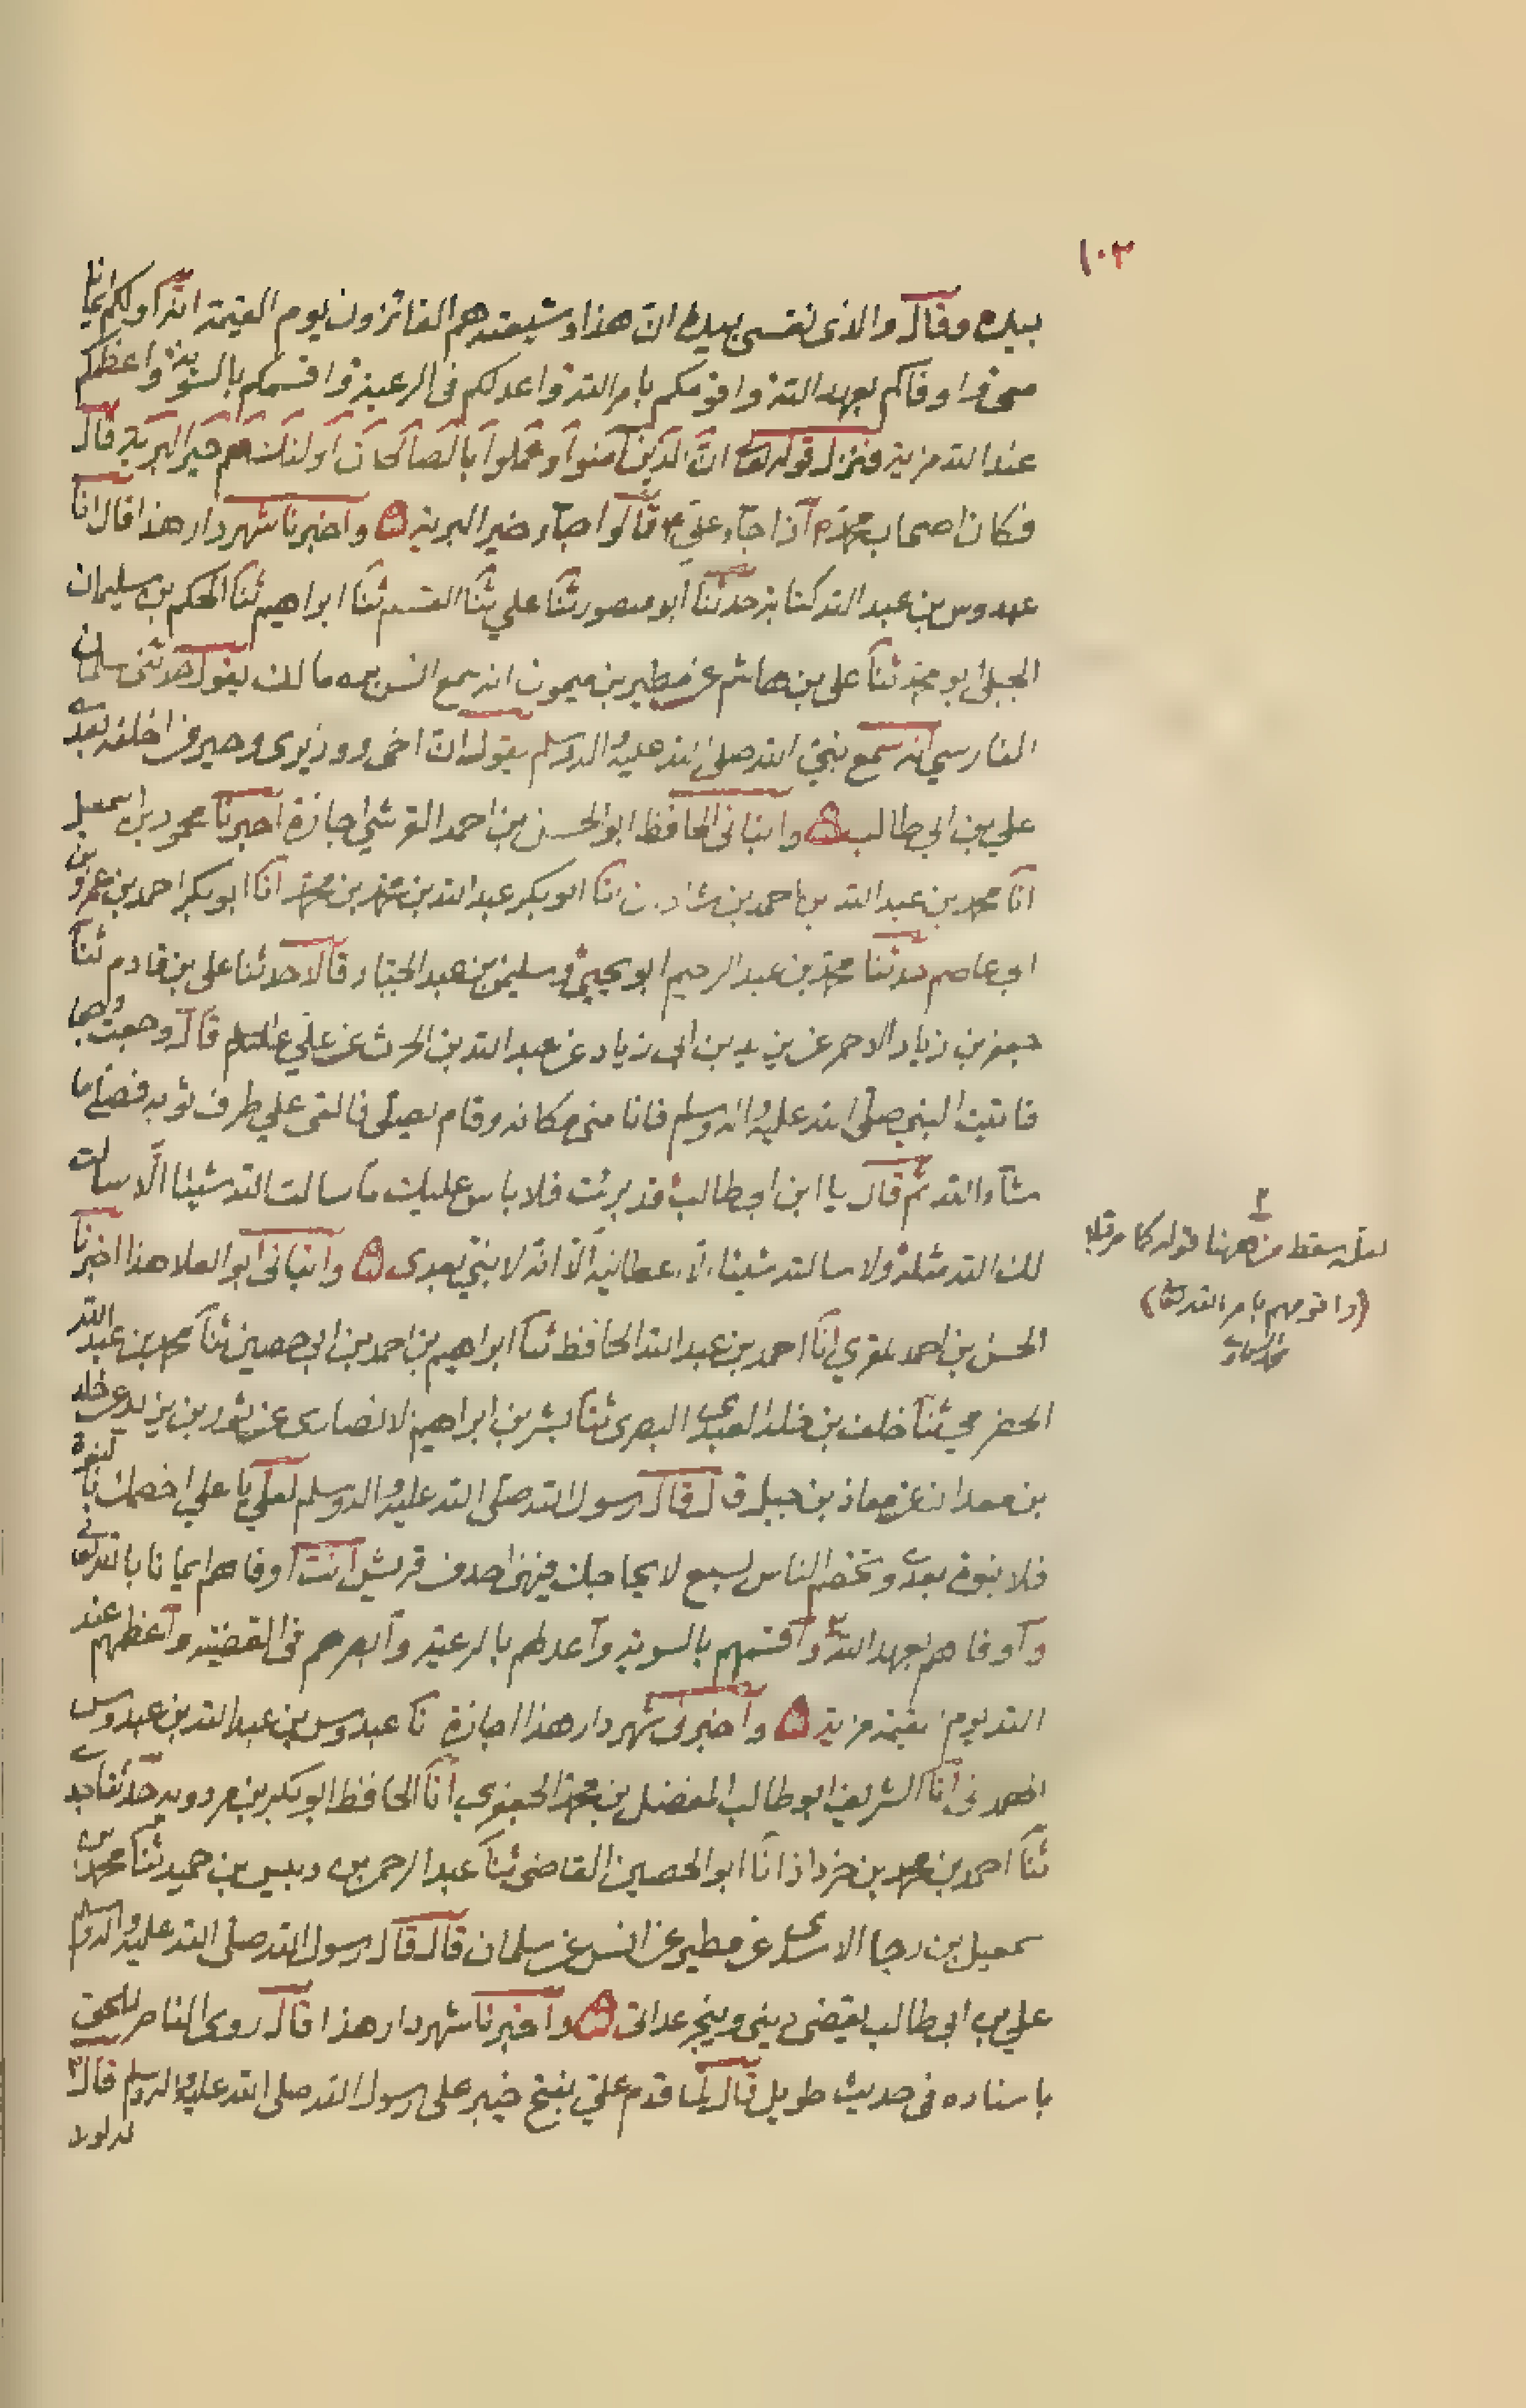 ١٠٣
بيده وقال والذى نفسى بيده ان هذا وشيعته هم الفائزون يوم القيمة انه اولكم ايمانا
معى واوفاكم بعهد الله واقومكم بامر الله واعدلكم فى الرعية واقسمكم بالسوية واعظمكم
عند الله مزية ونزل قوله تعالى ان الذين آمنوا وعملوا بالصالحات اولئك هم خير البرية قال
فكان اصحاب محمد اذا جاء علي قالوا جاء خير البرية واخبرنا شهردار هذا قال انا
عبدوس بن عبد الله كتابة حدثنا ابو منصور ثنا علي ثنا القسم ثنا ابراهيم ثنا الحكم بن سليمان
الجبلى ابو محمد ثنا على بن هاشم عن مطير بن ميمون انه سمع انس بن مالك يقول حدثنى سلمان
الفارسي انه سمع نبى الله صلى الله عليه واله وسلم يقول ان اخى ووزيرى وخير من اخلفه بعدى
علي بن ابي طالب وانبانى الحافظ ابو الحسن بن احمد القرشي اجازة اخبرنا محمود بن اسمعيل
انا محمد بن عبد الله بن احمد بن شاذان انا ابو بكر عبد الله بن محمد بن محمد انا ابو بكر احمد بن عمرو بن
ابى عاصم حدثنا محمد بن عبد الرحيم ابو يحيى وسليمن بن عبد الجبار قالا حدثنا على بن قادم ثنا
جعفر بن زياد الاحمر عن يزيد بن ابى زياد عن عبد الله بن الحرث عن علي عليه السلم قال وجعت وجعا
فاتيت النبي صلى الله عليه واله وسلم فانامنى مكانه وقام يصلى فالقى علي طرف ثوبه فصلى ما
شاء الله ثم قال يا ابن ابى طالب قد برئت فلا باس عليك ما سالت الله شيئا الا سالت
لك الله مثله ولا سالت الله شيئا الا اعطانيه الا انه لا نبي بعدى وانبانى ابو العلا هذا اخبرنا
الحسن بن احمد المقري انا احمد بن عبد الله الحافظ ثنا ابراهيم بن احمد بن ابي حصين ثنا محمد بن عبد الله
الحضرمي ثنا خلف بن خالد العبدى البصرى ثنا بشر بن ابراهيم الانصارى عن ثور بن يزيد عن خالد
بن معدان عن معاذ بن جبل قال قال رسول الله صلى الله عليه واله وسلم لعلي يا علي اخصمك بالنبوة
فلا نبوة بعدى وتخصم الناس بسبع لا يحاجك فيهن احد من قريش انت اوفاهم ايمانا بالله تعالى
واوفاهم بعهد الله واقسمهم بالسوية واعدلهم بالرعية وابصرهم فى القضية واعظمهم عند
الله يوم القيمة مزية واخبرنى شهردار هذا اجازة انا عبدوس بن عبد الله بن عبدوس
الهمدانى انا الشريف ابو طالب المفضل بن محمد الجعفرى انا الحافظ ابو بكر بن مردويه حدثنا جدى
ثنا احمد بن محمد بن خرداذ انا ابو الحصين القاضى ثنا عبد الرحمن بن دبيس بن حميد ثنا محمد بن
اسمعيل بن رجا الاسدى عن مطير عن انس عن سلمان قال قال رسول الله صلى الله عليه واله وسلم
علي بن ابي طالب يقضى دينى وينجز عداتى واخبرنا شهردار هذا قال روى الناصر للحق
باسناده فى حديث طويل قال لما قدم علي بفتح خيبر على رسول الله صلى الله عليه واله وسلم قال
له لولا
٢
لعله سقط من ههنا قوله كما مر قبله
(واقومهم بامر الله تعالى)